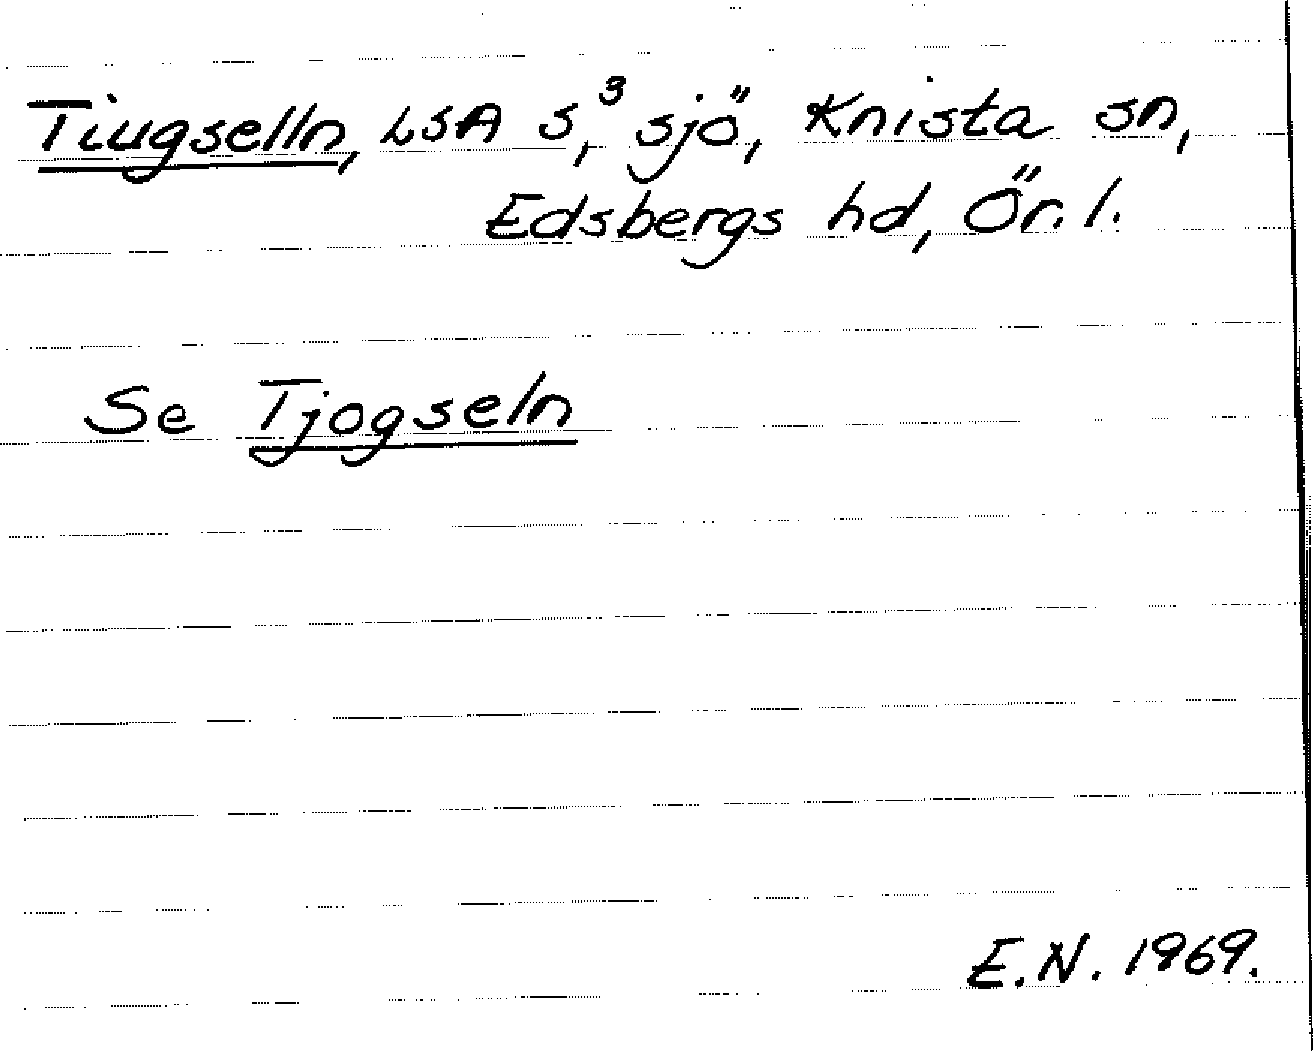 Tiugselln, LSA S,³ sjö, Knista sn,
Edsbergs hd, Ör. l.
Se Tjogseln
E.N. 1969.